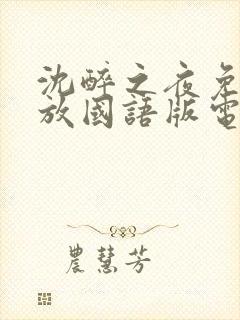 沈醉之夜免
放國語版電
農慧芳